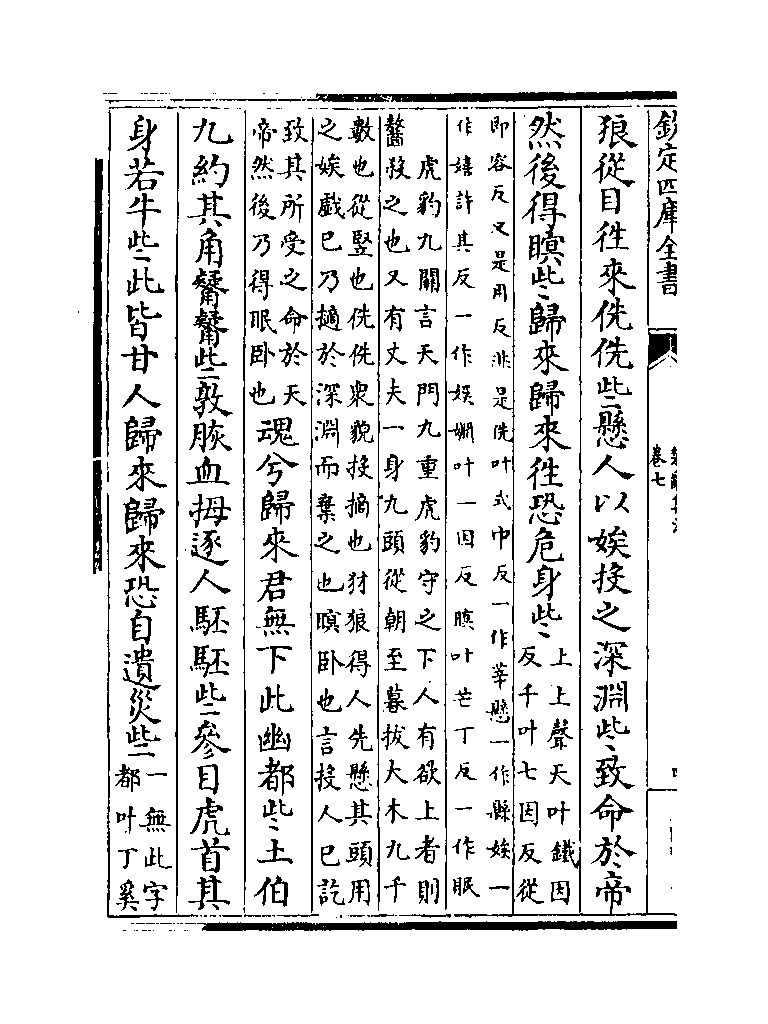 欽定四庫全書
卷七
狼從目往來侁侁些懸人以娭投之深淵些致命於帝
然後得瞑些歸來歸來往恐危身些
上上聲天叶鐵因
反千叶七因反從
即容反又是用反非是侁叶式巾反一作莘懸一作縣娭一
作嬉許其反一作娱淵叶一因反瞑叶芒丁反一作眠
虎豹九關言天門九重虎豹守之下人有欲上者則
齧殺之也又有丈夫一身九頭從朝至暮拔大木九千
數也從竪也侁侁衆貌投擿也豺狼得人先懸其頭用
之娭戲已乃擿於深淵而棄之也瞑卧也言投人已訖
致其所受之命於天
帝然後乃得眠卧也
魂兮歸來君無下此幽都些土伯
九約其角觺觺些敦脄血拇逐人駓駓些參目虎首其
身若牛些此皆甘人歸來歸來恐自遺災些
一無此字
都叶丁奚